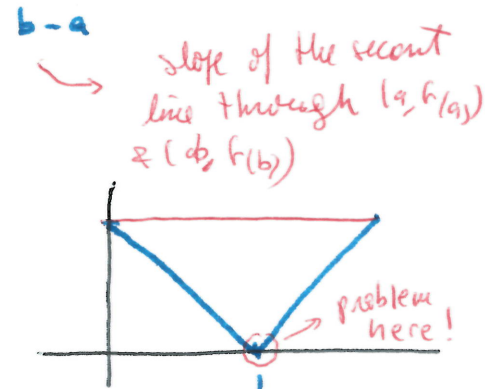 b - a
slope of the secant
line through (a, f(a))
& (b, f(b))
problem
here!
1